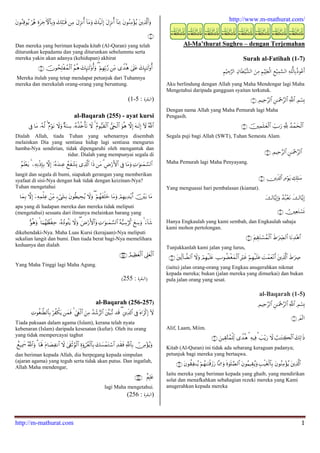 http://www.m-mathurat.com/
Al-Ma'thurat Sughro – dengan Terjemahan
وَالَّذِينَ يُؤْمِنُونَ بِمَا أُنزِلَ إِلَيْكَ وَمَا أُنزِلَ مِن قَبْلِكَ وَبِالْآخِرَةِ هُمْ يُوقِنُونَ
Dan mereka yang beriman kepada kitab (Al-Quran) yang telah diturunkan kepadamu dan yang diturunkan sebelummu serta mereka yakin akan adanya (kehidupan) akhirat
أُولَٰئِكَ عَلَىٰ هُدًى مِّن رَّبِّهِمْ ۖ وَأُولَٰئِكَ هُمُ الْمُفْلِحُونَ
Mereka itulah yang tetap mendapat petunjuk dari Tuhannya mereka dan merekalah orang-orang yang beruntung.
(البقرة: 1-5)
al-Baqarah (255) - ayat kursi
اللَّهُ لَا إِلَٰهَ إِلَّا هُوَ الْحَيُّ الْقَيُّومُ ۚ لَا تَأْخُذُهُ سِنَةٌ وَلَا نَوْمٌ ۚ لَّهُ مَا فِي
Dialah Allah, tiada Tuhan yang sebenarnya disembah melainkan Dia yang sentiasa hidup lagi sentiasa mengurus hamba-Nya sendirian, tidak dipengaruhi oleh mengantuk dan tidur. Dialah yang mempunyai segala di
السَّمَاوَاتِ وَمَا فِي الْأَرْضِ ۗ مَن ذَا الَّذِي يَشْفَعُ عِندَهُ إِلَّا بِإِذْنِهِ ۚ يَعْلَمُ
langit dan segala di bumi, siapakah gerangan yang memberikan syafaat di sisi-Nya dengan hak tidak dengan keizinan-Nya? Tuhan mengetahui
مَا بَيْنَ أَيْدِيهِمْ وَمَا خَلْفَهُمْ ۖ وَلَا يُحِيطُونَ بِشَيْءٍ مِّنْ عِلْمِهِ إِلَّا بِمَا
apa yang di hadapan mereka dan mereka tidak meliputi (mengetahui) sesuatu dari ilmunya melainkan barang yang
شَاءَ ۚ وَسِعَ كُرْسِيُّهُ السَّمَاوَاتِ وَالْأَرْضَ ۖ وَلَا يَئُودُهُ حِفْظُهُمَا ۚ وَهُوَ
dikehendaki-Nya. Maha Luas Kursi (kerajaan)-Nya meliputi sekalian langit dan bumi. Dan tiada berat bagi-Nya memelihara keduanya dan dialah
الْعَلِيُّ الْعَظِيمُ
Yang Maha Tinggi lagi Maha Agung.
(البقرة: 255)
al-Baqarah (256-257)
لَا إِكْرَاهَ فِي الدِّينِ ۖ قَد تَّبَيَّنَ الرُّشْدُ مِنَ الْغَيِّ ۚ فَمَن يَكْفُرْ بِالطَّاغُوتِ
Tiada paksaan dalam agama (Islam), kerana telah nyata kebenaran (Islam) daripada kesesatan (kufur). Oleh itu orang yang tidak mempercayai taghut
وَيُؤْمِن بِاللَّهِ فَقَدِ اسْتَمْسَكَ بِالْعُرْوَةِ الْوُثْقَىٰ لَا انفِصَامَ لَهَا ۗ وَاللَّهُ سَمِيعٌ
dan beriman kepada Allah, dia berpegang kepada simpulan (ajaran agama) yang teguh serta tidak akan putus. Dan ingatlah, Allah Maha mendengar,
عَلِيمٌ
lagi Maha mengetahui.
(البقرة: 256)
Surah al-Fatihah (1-7)
أَعُوذُ بِاللَّهِ السَّمِيعِ الْعَلِيمِ مِنَ الشَّيْطَانِ الرَّجِيمِ
Aku berlindung dengan Allah yang Maha Mendengar lagi Maha Mengetahui daripada gangguan syaitan terkutuk.
بِسْمِ اللَّهِ الرَّحْمَٰنِ الرَّحِيمِ
Dengan nama Allah yang Maha Pemurah lagi Maha Pengasih.
الْحَمْدُ لِلَّهِ رَبِّ الْعَالَمِينَ
Segala puji bagi Allah (SWT), Tuhan Semesta Alam.
الرَّحْمَٰنِ الرَّحِيمِ
Maha Pemurah lagi Maha Penyayang.
مَالِكِ يَوْمِ الدِّينِ
Yang menguasai hari pembalasan (kiamat).
إِيَّاكَ نَعْبُدُ وَإِيَّاكَ نَسْتَعِينُ
Hanya Engkaulah yang kami sembah, dan Engkaulah sahaja kami mohon pertolongan.
اهْدِنَا الصِّرَاطَ الْمُسْتَقِيمَ
Tunjukkanlah kami jalan yang lurus,
صِرَاطَ الَّذِينَ أَنْعَمْتَ عَلَيْهِمْ غَيْرِ الْمَغْضُوبِ عَلَيْهِمْ وَلَا الضَّالِّينَ
(iaitu) jalan orang-orang yang Engkau anugerahkan nikmat kepada mereka; bukan (jalan mereka yang dimurkai) dan bukan pula jalan orang yang sesat.
al-Baqarah (1-5)
بِسْمِ اللَّهِ الرَّحْمَٰنِ الرَّحِيمِ
الم
Alif, Laam, Miim.
ذَٰلِكَ الْكِتَابُ لَا رَيْبَ ۛ فِيهِ ۛ هُدًى لِّلْمُتَّقِينَ
Kitab (Al-Quran) ini tidak ada sebarang keraguan padanya; petunjuk bagi mereka yang bertaqwa.
الَّذِينَ يُؤْمِنُونَ بِالْغَيْبِ وَيُقِيمُونَ الصَّلَاةَ وَمِمَّا رَزَقْنَاهُمْ يُنفِقُونَ
Iaitu mereka yang beriman kepada yang ghaib, yang mendirikan solat dan menafkahkan sebahagian rezeki mereka yang Kami anugerahkan kepada mereka
http://m-mathurat.com
1